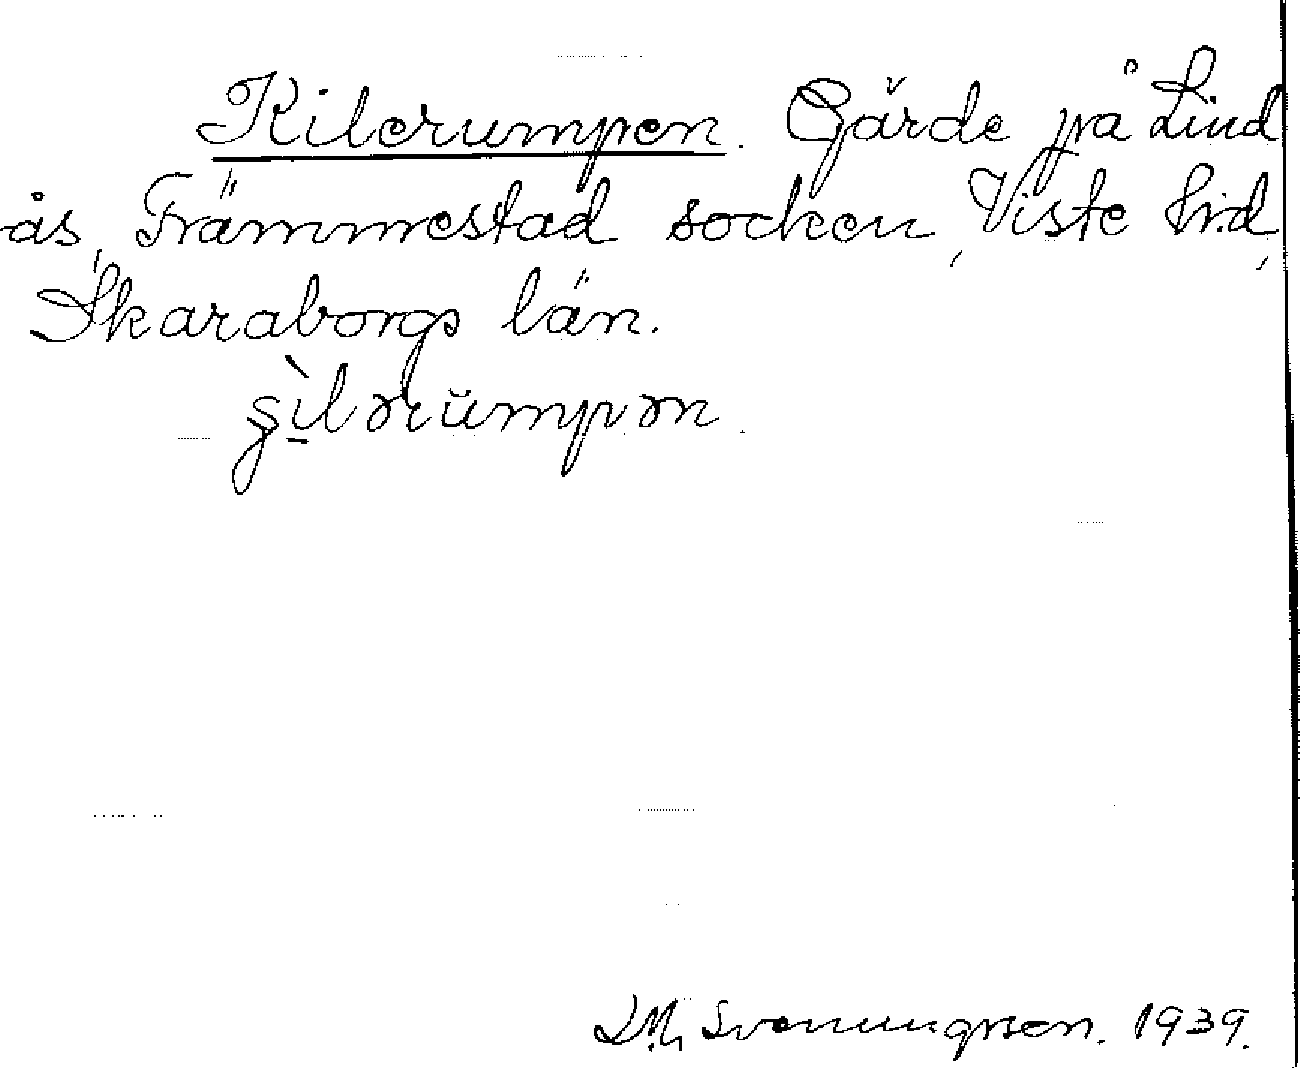 Kilerumpen. Gärde på Lind
ås, Främmestad socken, Viste hrd,
Skaraborgs län.
Svenungsson. 1939.